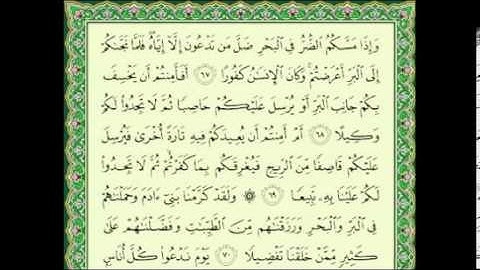 وَإِذَا مَسَّكُمُ ٱلضُّرُّ فِى ٱلْبَحْرِ ضَلَّ مَن تَدْعُونَ إِلَّآ إِيَّاهُ فَلَمَّا نَجَّىٰكُمْ
إِلَى ٱلْبَرِّ أَعْرَضْتُمْ وَكَانَ ٱلْإِنسَٰنُ كَفُورًا ٦٧ أَفَأَمِنتُمْ أَن يَخْسِفَ
بِكُمْ جَانِبَ ٱلْبَرِّ أَوْ يُرْسِلَ عَلَيْكُمْ حَاصِبًا ثُمَّ لَا تَجِدُوا۟ لَكُمْ
وَكِيلًا ٦٨ أَمْ أَمِنتُمْ أَن يُعِيدَكُمْ فِيهِ تَارَةً أُخْرَىٰ فَيُرْسِلَ
عَلَيْكُمْ قَاصِفًا مِّنَ ٱلرِّيحِ فَيُغْرِقَكُم بِمَا كَفَرْتُمْ ثُمَّ لَا تَجِدُوا۟
لَكُمْ عَلَيْنَا بِهِۦ تَبِيعًا ٦٩ ۞ وَلَقَدْ كَرَّمْنَا بَنِىٓ ءَادَمَ وَحَمَلْنَٰهُمْ
فِى ٱلْبَرِّ وَٱلْبَحْرِ وَرَزَقْنَٰهُم مِّنَ ٱلطَّيِّبَٰتِ وَفَضَّلْنَٰهُمْ عَلَىٰ
كَثِيرٍ مِّمَّنْ خَلَقْنَا تَفْضِيلًا ٧٠ يَوْمَ نَدْعُوا۟ كُلَّ أُنَاسٍۭ